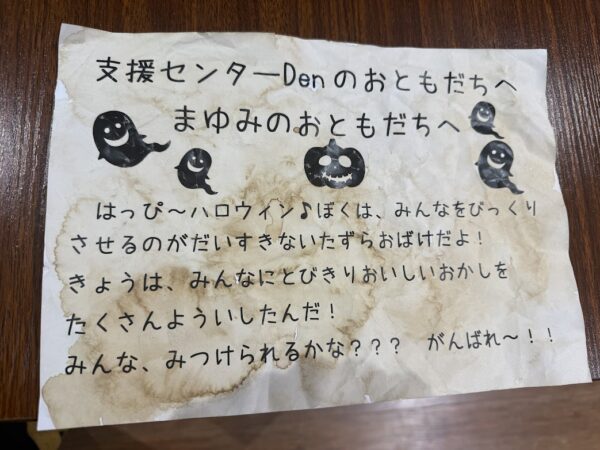 支援センターDenのおともだちへ
まゆみのおともだちへ
はっぴ～ハロウィン♪ぼくは、みんなをびっくり
させるのがだいすきないたずらおばけだよ！
きょうは、みんなにとびきりおいしいおかしを
たくさんよういしたんだ！
みんな、みつけられるかな？？？　がんばれ～！！